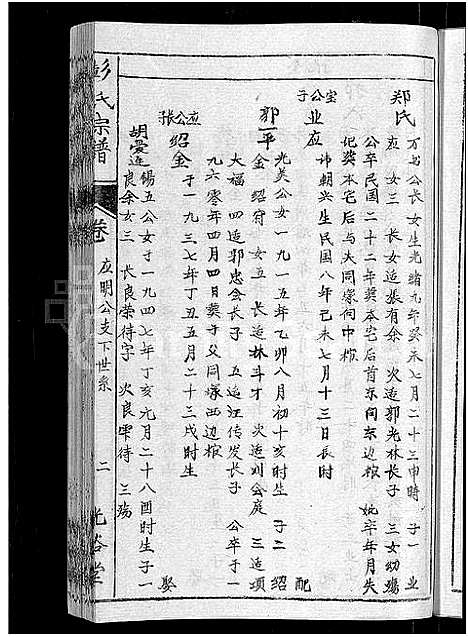 郑氏 万七公长女生光绪九年癸未七月二十三申時 子一 业
应 女三 长女适張有余 次适郭光林長子 三女幼殤
公卒民国二十二年葬本宅后首东向东边棺 妣卒年月失
记葬本宅后与夫同塚向中棺
宝公子 业应 讳朝兴生民國八年己未七月十三日辰时 配
郭一平 光美公女一九一五年乙卯八月初十亥时生 子二 绍
金 绍府 女五 长适林斗才 次适刘会庭 三适项
大福 四适郭忠会长子 五适汪传发长子 公卒于一
九六零年四月四日葬于父同塚西边棺
应公张 绍金 于一九三七年丁丑五月二十三戌时生 娶
胡爱莲 锡五公女于一九四七年丁亥九月二十八酉时生子一
良余女三 长良荣待字 次良雫待 三殇
彭氏宗譜
卷
应明公支下世系
二
光裕堂